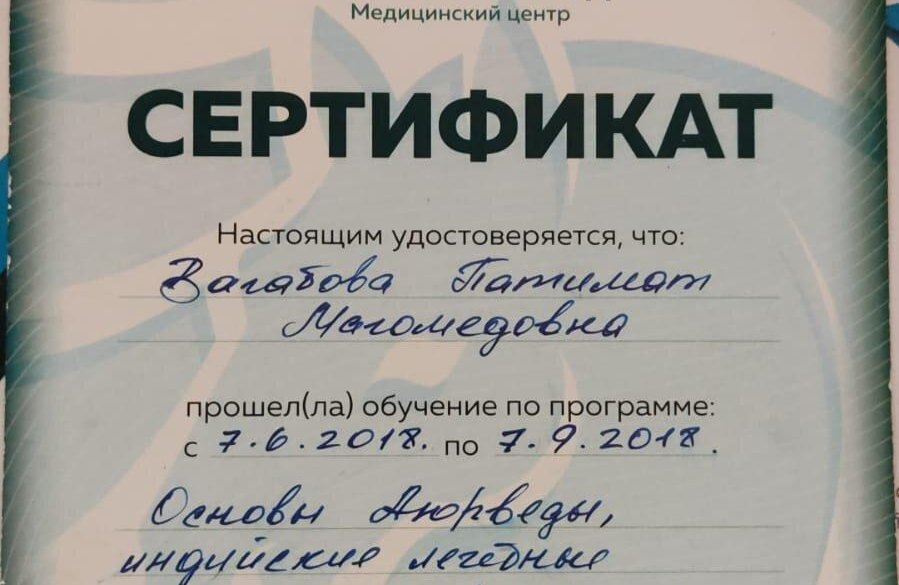 Медицинский центр
СЕРТИФИКАТ
Настоящим удостоверяется, что:
Вагабова Патимат
Магомедовна
прошел(ла) обучение по программе:
с 7.6.2018. по 7.9.2018.
Основы Аюрведы,
индийские лечебные